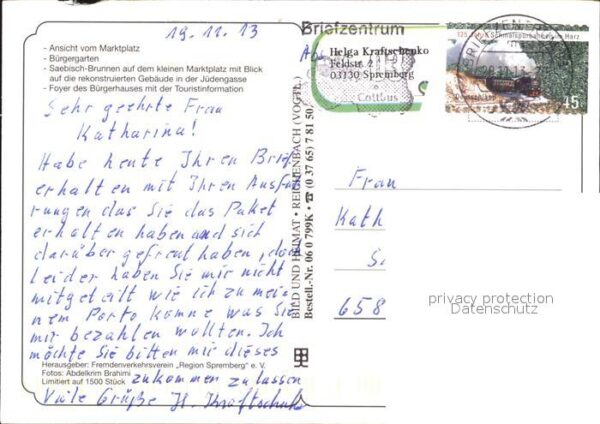 19.11.13
- Ansicht vom Marktplatz
- Bürgergarten
- Saebisch-Brunnen auf dem kleinen Marktplatz mit Blick
auf die rekonstruierten Gebäude in der Jüdengasse
- Foyer des Bürgerhauses mit der Touristinformation
Sehr geehrte Frau
Katharina!
Habe heute Ihren Brief
erhalten mit Ihren Ausfüh
rungen das Sie das Paket
erhalten haben und sich
darüber gefreut haben, doch
leider haben Sie mir nicht
mitgeteilt wie ich zu mei-
nem Porto komme was Sie
mir bezahlen wollten. Ich
möchte Sie bitten mir dieses
Herausgeber: Fremdenverkehrsverein „Region Spremberg" e. V.
Fotos: Abdelkrim Brahimi
Limitiert auf 1500 Stück
zukommen zu lassen
Viele Grüße H. Kraftschenko
BILD UND HEIMAT • REICHENBACH (VOGTL.)
Bestell.-Nr. 06 0 799K • ☎ (0 37 65) 7 81 50
Briefzentrum
Abs
Helga Kraftschenko
Feldstr. 2
03130 Spremberg
Cottbus
45
Frau
Kath
S
658
privacy protection
Datenschutz